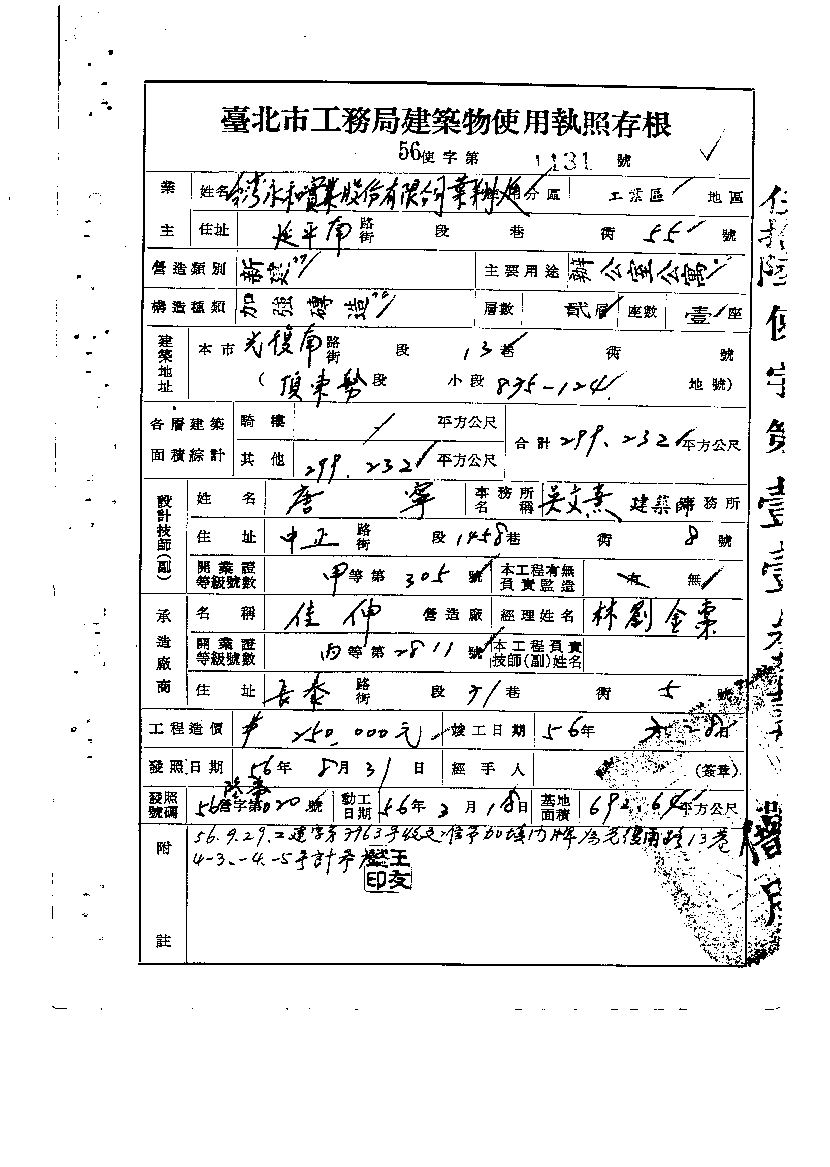 臺北市工務局建築物使用執照存根
56使字第 1131 號
業主 姓名 台灣永和實業股份有限公司 使用分區 工業區 地區
住址 延平南 路街 段 巷 衖 55 號
營造類別 新建 主要用途 辦公室公寓
構造種類 加強磚造 層數 貳層 座數 壹座
建築地址 本市 光復南 路街 段 13巷 衖 號
(頂東勢段 小段 835-124 地號)
各層建築面積綜計 騎樓 / 平方公尺 合計 299.232 平方公尺
其他 299.232 平方公尺
設計技師(副) 姓名 唐寧 事務所名稱 吳文熹 建築師事務所
住址 中正 路街 段 1458巷 衖 8號
開業證等級號數 甲等第 305 號 本工程有無負實監造 有 無
承造廠商 名稱 佳伸 營造廠 經理姓名 林劉金粟
開業證等級號數 丙等第 2811 號 本工程負實技師(副)姓名
住址 長泰 路街 段 31巷 衖 5 號
工程造價 # 250,000元 竣工日期 56年 28日
發照日期 56年 8月 31日 經手人 (簽章)
發照號碼 56營字第020號 動工日期 56年 3月 18日 基地面積 692.64 平方公尺
附註 56.9.29.工建字第3963號 准予加填門牌為光復南路13巷
4-3、-4、-5號計
王友
印
使字第壹壹